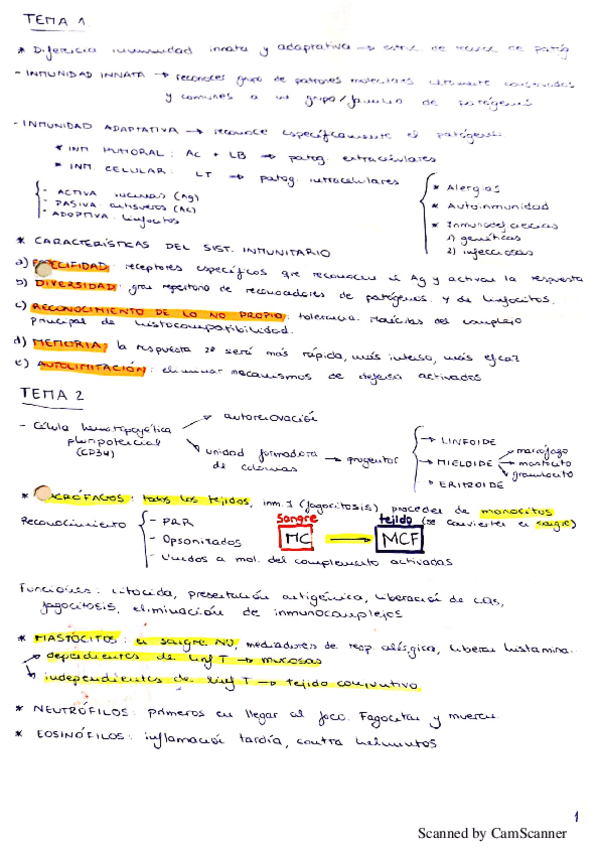 TEMA 1
* Diferencia inmunidad innata y adaptativa → estr. de reconoc. de patóg
- INMUNIDAD INNATA → reconocer grupo de patrones moleculares altamente conservados
y comunes a un grupo/familia de patógenos
- INMUNIDAD ADAPTATIVA → reconoce específicamente el patógeno.
* INM HUMORAL: Ac + LB → patog. extracelulares
* INM. CELULAR: LT → patog. intracelulares
- ACTIVA vacunas (Ag)
- PASIVA: antisueros (Ac)
- ADOPTIVA: linfocitos
* Alergias
* Autoinmunidad
* Inmunodeficiencias
1) genéticas
2) infecciosas
* CARACTERÍSTICAS DEL SIST. INMUNITARIO
a) ESPECIFIDAD: receptores específicos que reconocen el Ag y activan la respuesta
b) DIVERSIDAD: gran repertorio de reconocedores de patógenos y de linfocitos.
c) RECONOCIMIENTO DE LO NO PROPIO: tolerancia. Moléculas del complejo
principal de histocompatibilidad.
d) MEMORIA: la respuesta 2ª será más rápida, más intensa, más eficaz
e) AUTOLIMITACIÓN: eliminar mecanismos de defensa activados
TEMA 2
- Célula hematopoyética
pluripotencial
(CD34)
→ autorenovación
→ unidad formadora
de colonias
→ progenitor
→ LINFOIDE
→ MIELOIDE
→ macrófago
→ mastocito
→ granulocito
→ ERITROIDE
* MACRÓFAGOS: todos los tejidos, inm. 1 (fagocitosis), proceden de monocitos
(se convierten en sangre)
Reconocimiento
- PRR
- Opsonizados
- Unidos a mol. del complemento activadas
sangre
MC
→
tejido
MCF
Funciones: citocida, presentación antigénica, liberación de CQs,
fagocitosis, eliminación de inmunocomplejos
* MASTOCITOS: en sangre NO, mediadores de resp. alérgica, liberan histamina.
→ dependientes de linf T → mucosas
→ independientes de linf T → tejido conjuntivo
* NEUTRÓFILOS: primeros en llegar al foco. Fagocitan y mueren
* EOSINÓFILOS: inflamación tardía, contra helmintos
1
Scanned by CamScanner